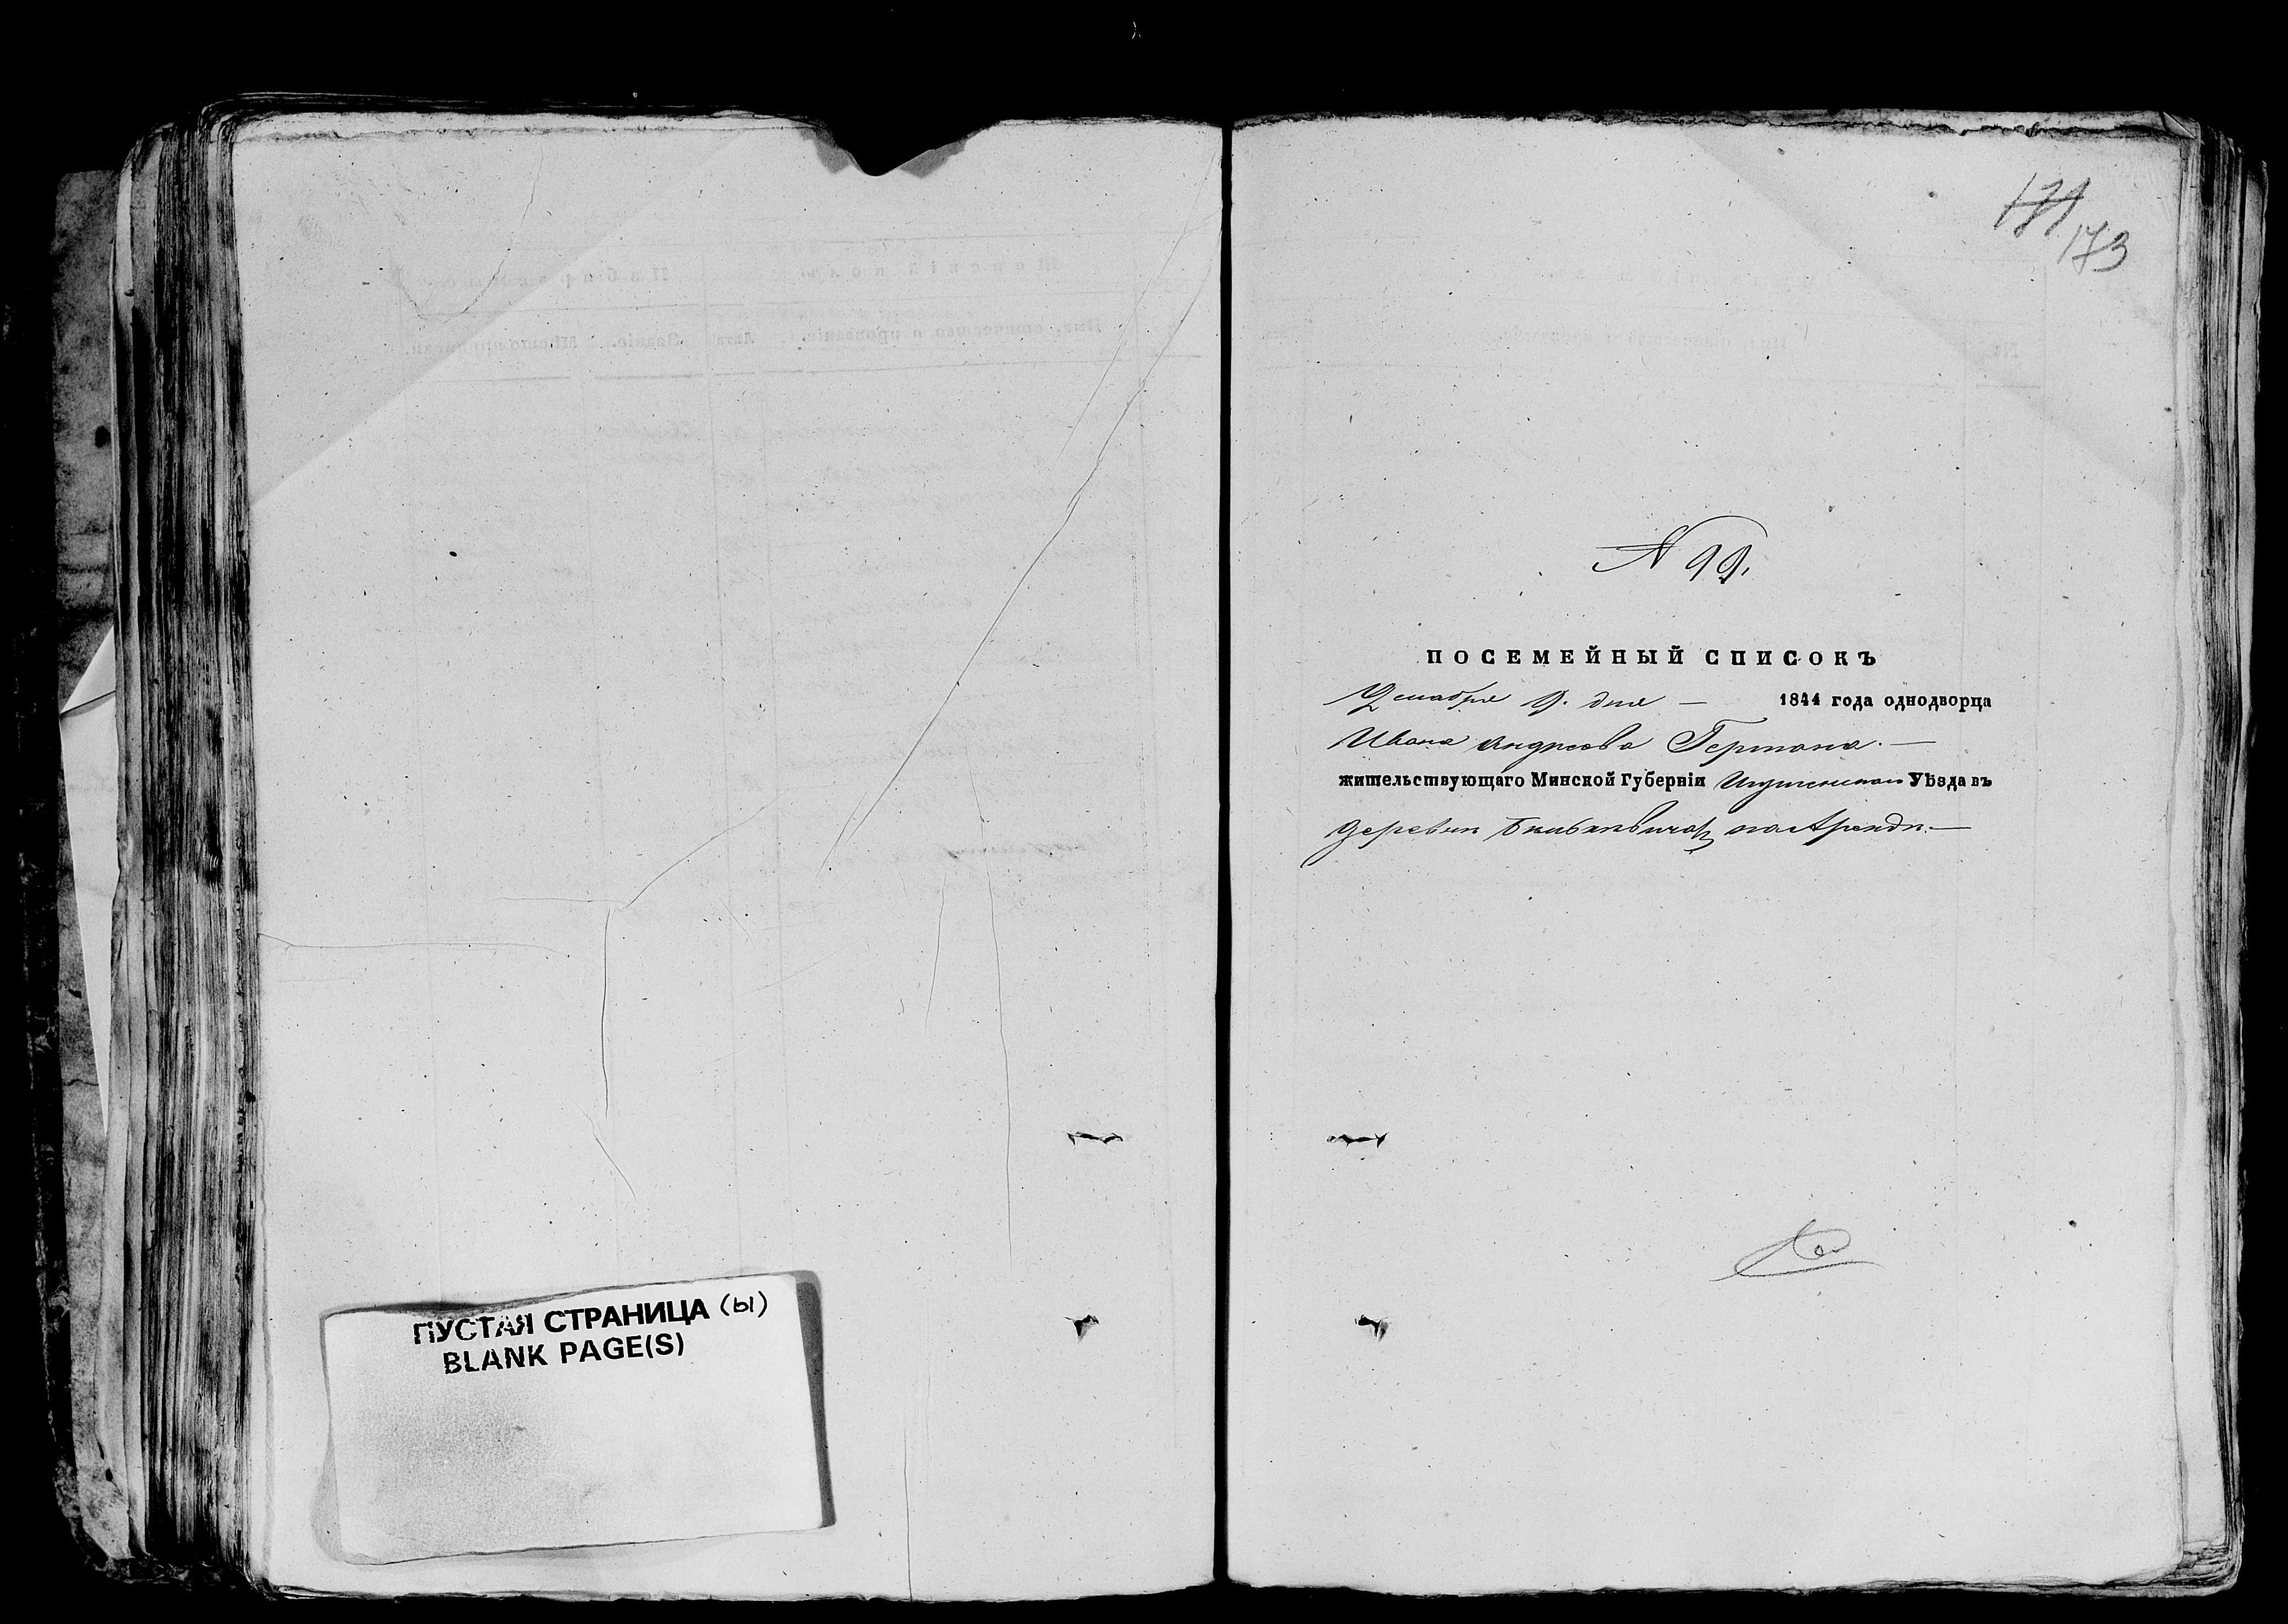 171
173
N 99.
ПОСЕМЕЙНЫЙ СПИСОКЪ
Декабря 9. дня — 1844 года однодворца
Ивана Андреева Германа. —
жительствующаго Минской Губерніи Игуменскаго Уѣзда въ
деревни на Арендѣ. —
ПУСТАЯ СТРАНИЦА (ы)
BLANK PAGE(S)